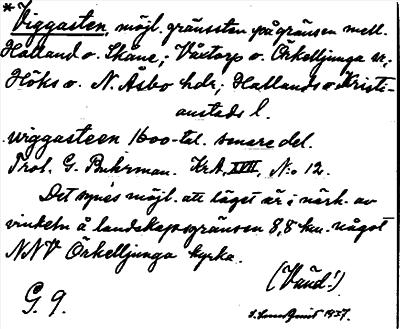 *Viggasten, möjl. gränssten på gränsen mell.
Halland o. Skåne; Våxtorp o. Örkelljunga sn;
Höks o. N. Åsbo hdr; Hallands o. Kristi-
anstads l.
wiggasteen 1600-tal. senare del.
Prof. G. Buhrman. KrA, XVII, N:o 12.
Det synes möjl. att läget är i närh. av
vindeln å landskapsgränsen 8,8 km. något
NNV Örkelljunga kyrka.
(Vänd!)
G. 9.
1937.